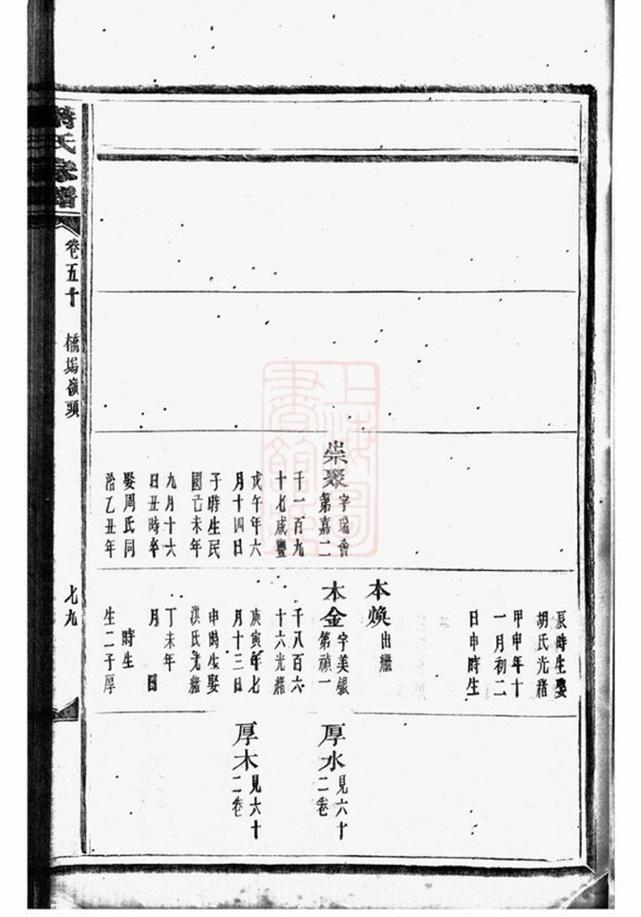 氏宗譜
卷五十
橋塢嶺頭
七九
崇聚
字瑞會
第嘉二
千一百九
十七咸豐
戊午年六
月十四日
子時生民
國己未年
九月十六
日丑時卒
娶周氏同
治乙丑年
辰時生娶
胡氏光緒
甲申年十
一月初二
日申時生
本煥
出繼
本金
字美銀
第禎一
千八百六
十六光緒
庚寅年七
月十三日
申時生娶
洪氏光緒
丁未年
月 日
時生
生二子厚
厚水
見六十
二卷
厚木
見六十
二卷
上海圖
書館藏